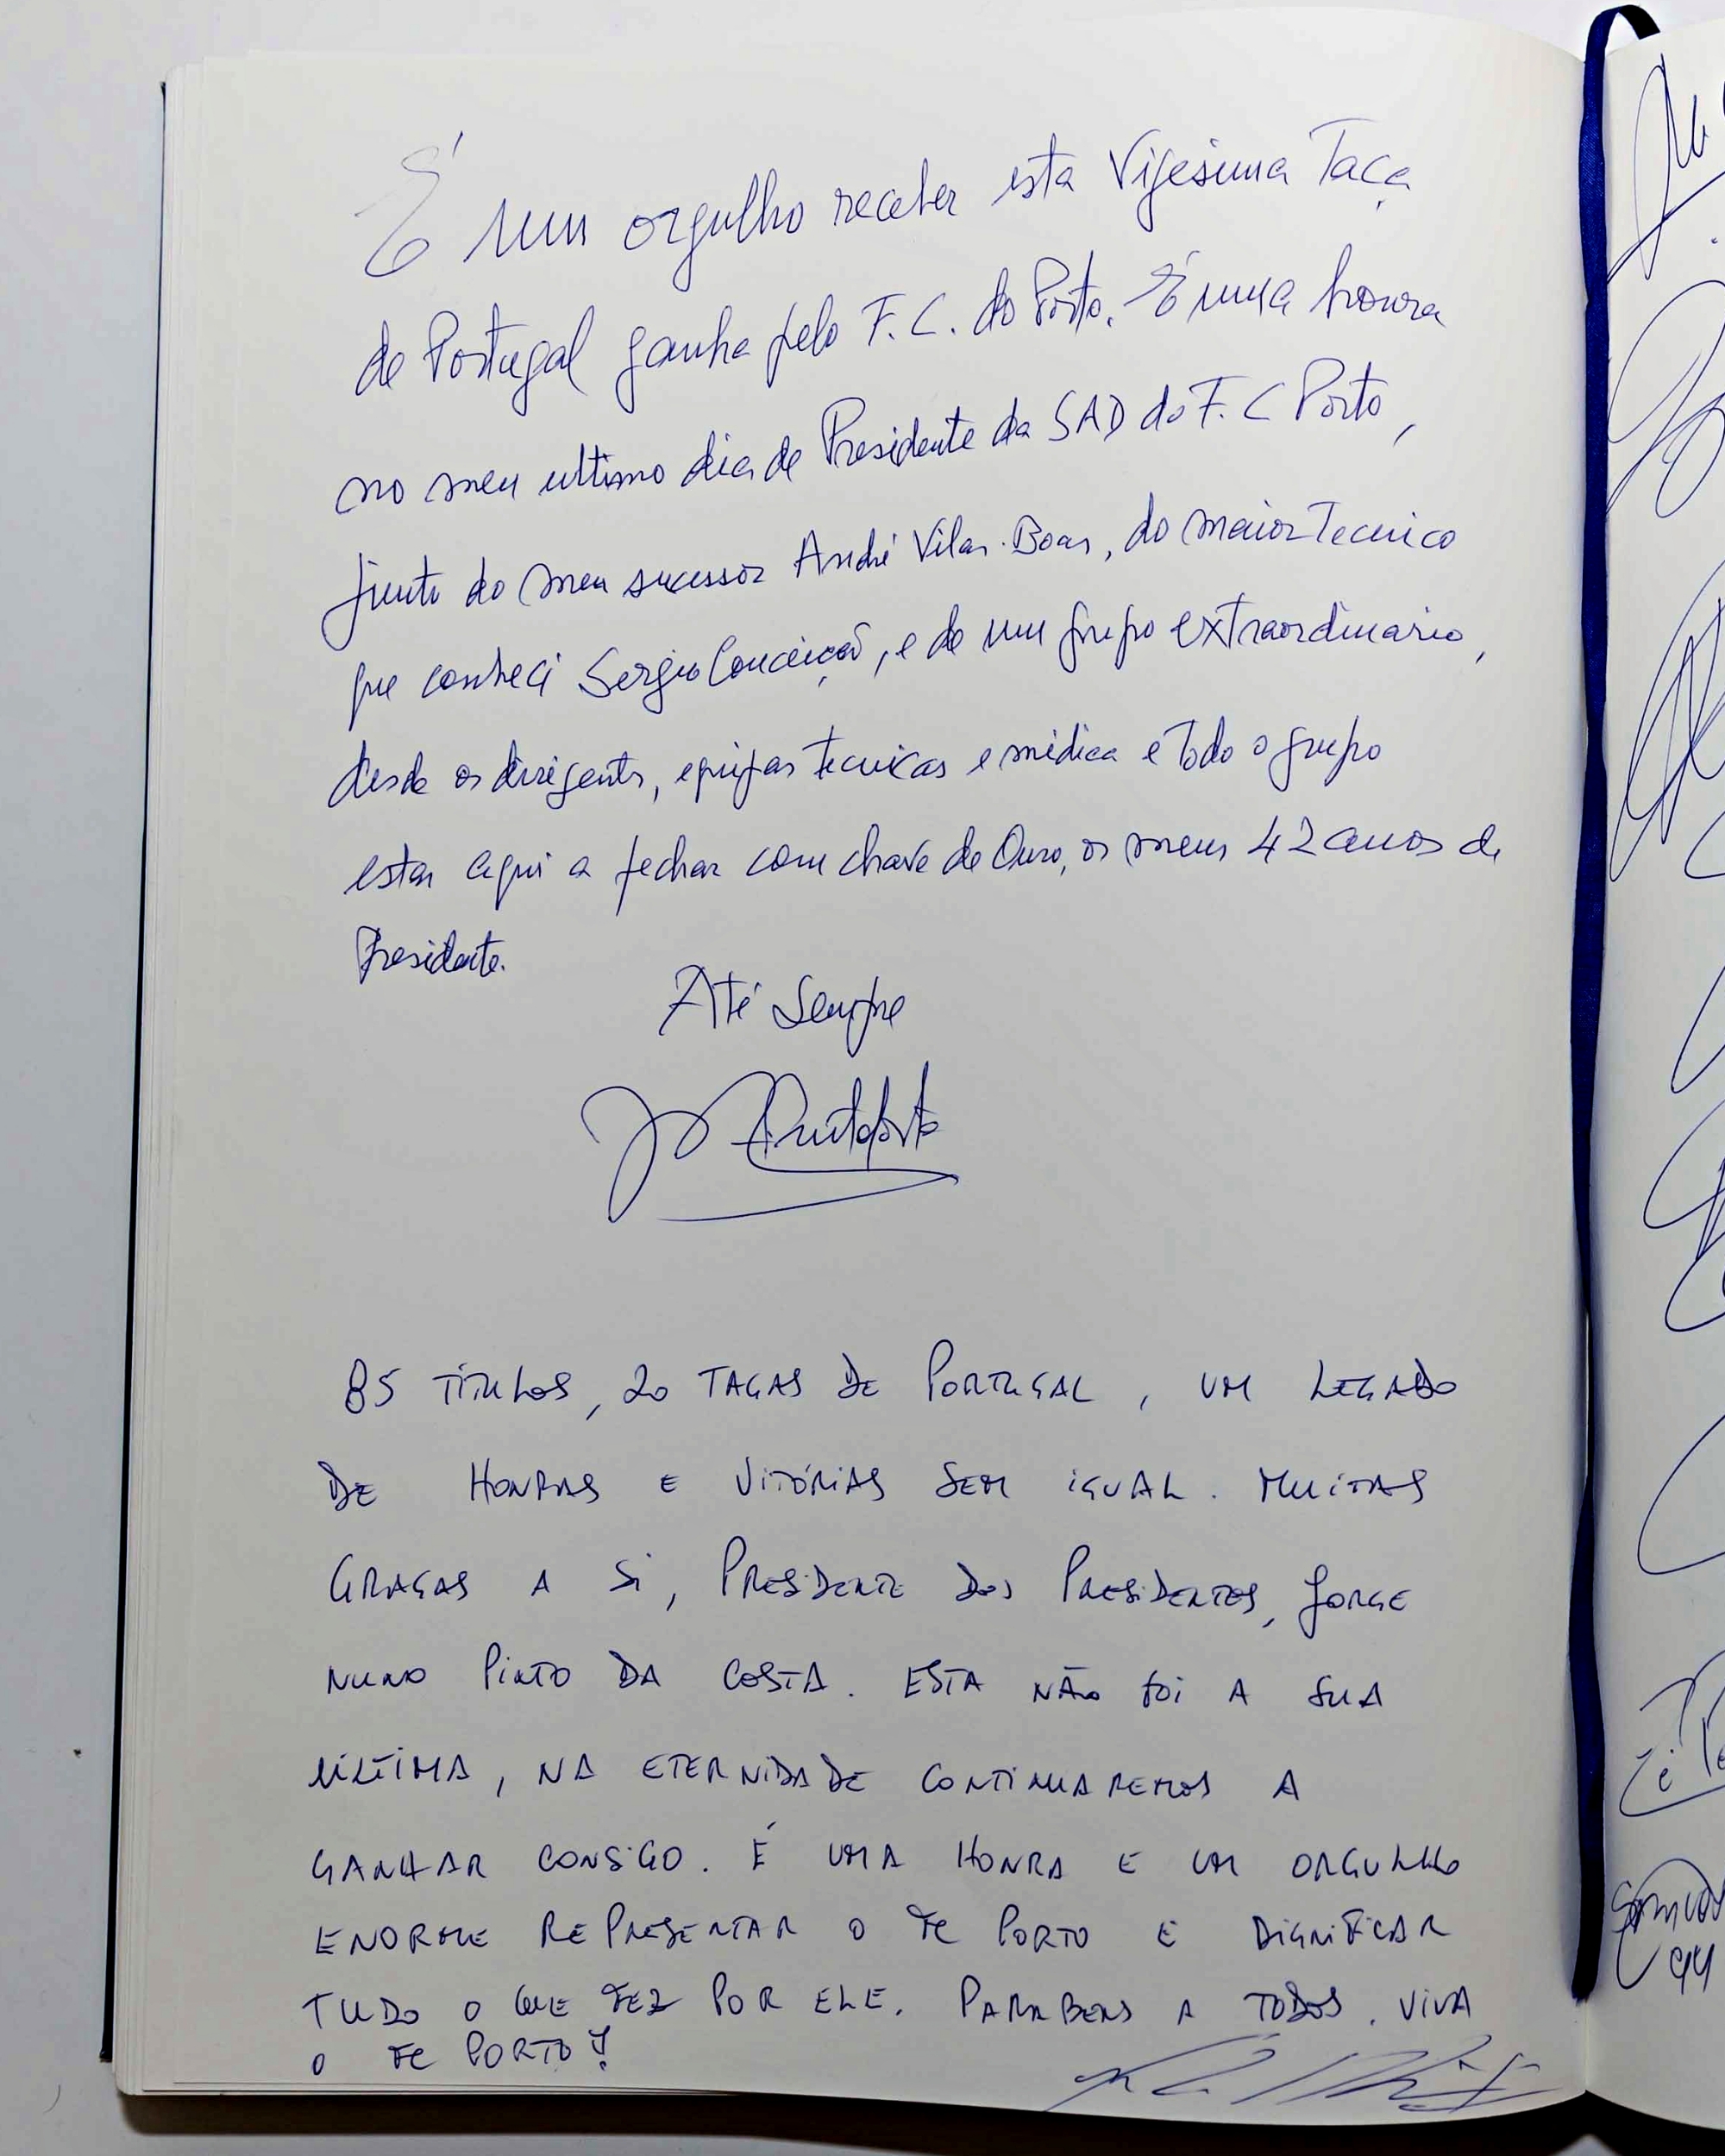 É um orgulho receber esta Vigésima Taça
de Portugal ganha pelo F. C. do Porto. É uma honra
no meu ultimo dia de Presidente da SAD do F. C Porto,
junto do meu sucessor André Vilas-Boas, do maior Tecnico
que conheci Sergio Conceição, e de um grupo extraordinario,
desde os dirigentes, equipas tecnicas e médica e todo o grupo
estar aqui a fechar com chave de Ouro, os meus 42 anos de
Presidente.
Até Sempre
85 TÍTULOS, 20 TAÇAS DE PORTUGAL, UM LEGADO
DE HONRAS E VITÓRIAS SEM IGUAL. MUITAS
GRAÇAS A SI, PRESIDENTE DOS PRESIDENTES, JORGE
NUNO PINTO DA COSTA. ESTA NÃO FOI A SUA
ÚLTIMA, NA ETERNIDADE CONTINUAREMOS A
GANHAR CONSIGO. É UMA HONRA E UM ORGULHO
ENORME REPRESENTAR O FC PORTO E DIGNIFICAR
TUDO O QUE FEZ POR ELE. PARABENS A TODOS. VIVA
O FC PORTO!